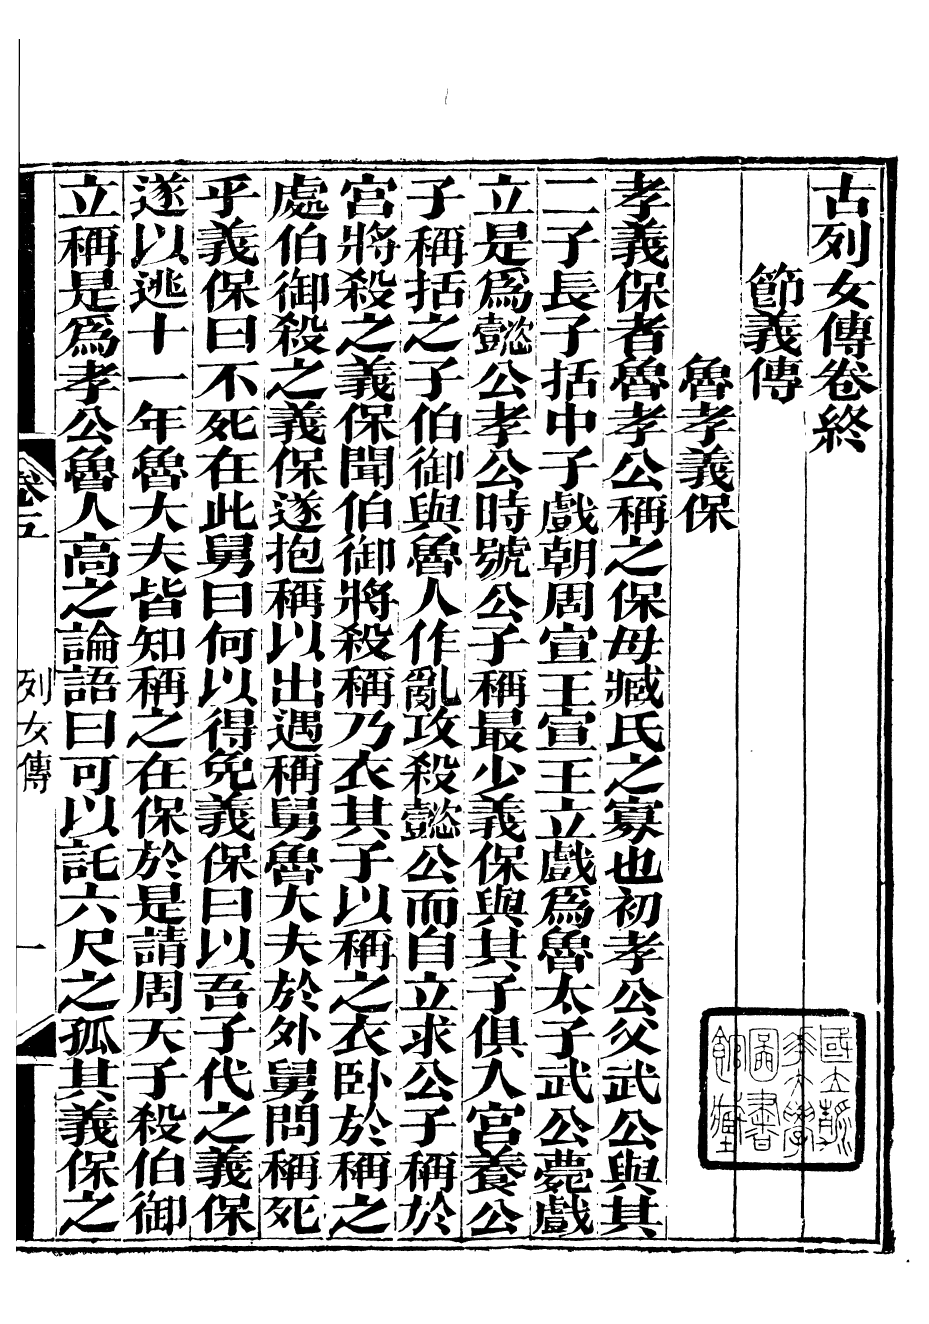 古列女傳卷終
節義傳
魯孝義保
孝義保者魯孝公稱之保母臧氏之寡也初孝公父武公與其
二子長子括中子戲朝周宣王宣王立戲爲魯太子武公薨戲
立是爲懿公孝公時號公子稱最少義保與其子俱入宮養公
子稱括之子伯御與魯人作亂攻殺懿公而自立求公子稱於
宮將殺之義保聞伯御將殺稱乃衣其子以稱之衣臥於稱之
處伯御殺之義保遂抱稱以出遇稱舅魯大夫於外舅問稱死
乎義保曰不死在此舅曰何以得免義保曰以吾子代之義保
遂以逃十一年魯大夫皆知稱之在保於是請周天子殺伯御
立稱是爲孝公魯人高之論語曰可以託六尺之孤其義保之
卷五
列女傳
一